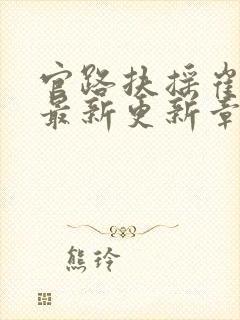 官路扶摇崔
最新更新章
熊玲